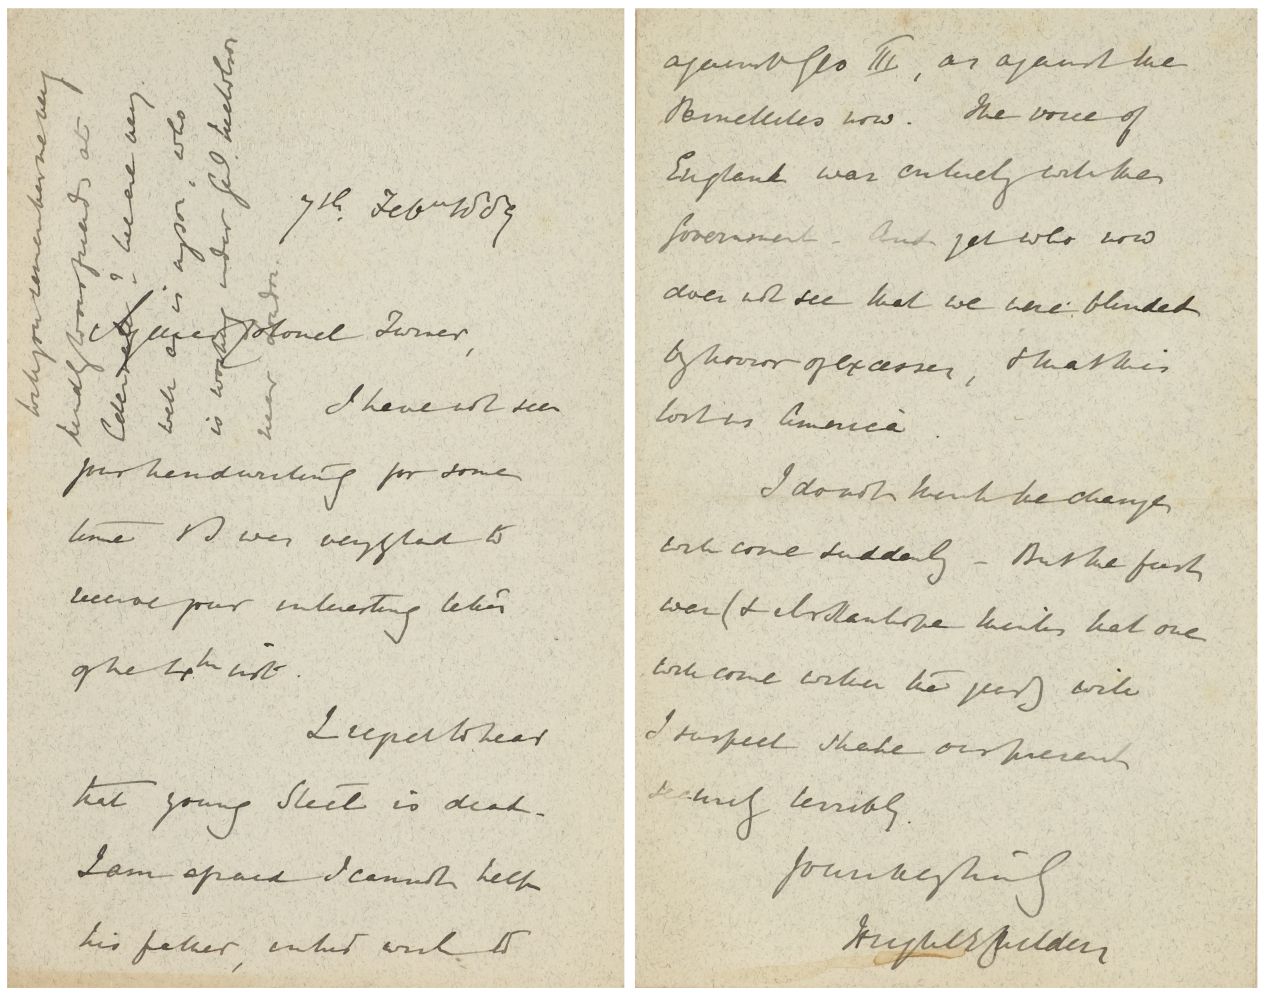 7th. Feby 1889
My dear Colonel Turner,
I have not seen
your handwriting for some
time & was very glad to
receive your interesting letter
of the 4th inst.
I regret to hear
that young Steel is dead.
I am afraid I cannot help
his father, in his wish to
will you remember me very
kindly to our friends at
we are very
well as is my son, who
is working under Genl. Nicholson
near London.
against Geo III, as against the
Parnellites now. The voice of
England was entirely with the
Government. And yet who now
does not see that we were blinded
by horror of excesses, & that this
lost us America.
I do not think the change
will come suddenly - But the first
war (& thinks that one
will come within the year) will
I suspect shake our present
security terribly.
Yours very truly